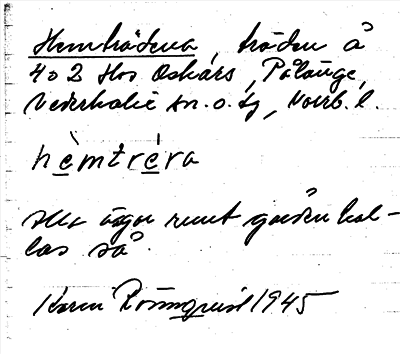 Hemträdena, träden å
402 Hos Oskars, Pålänge,
Nederkalix sn. o. tg, Norrb. l.
hemtrera
Alla ägor runt gården kal-
las så.
Karin Rönnquist 1945